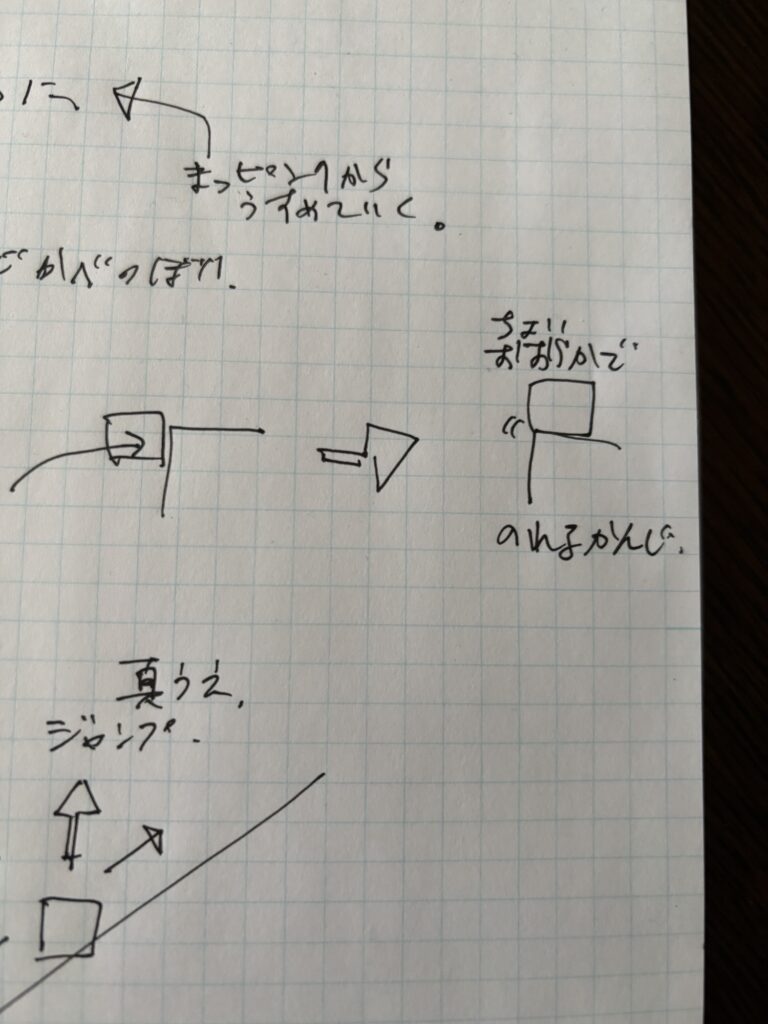 まっピンクから
うすめていく。
ちょい
おおらかで
のれるかんじ.
真うえ.
ジャンプ.